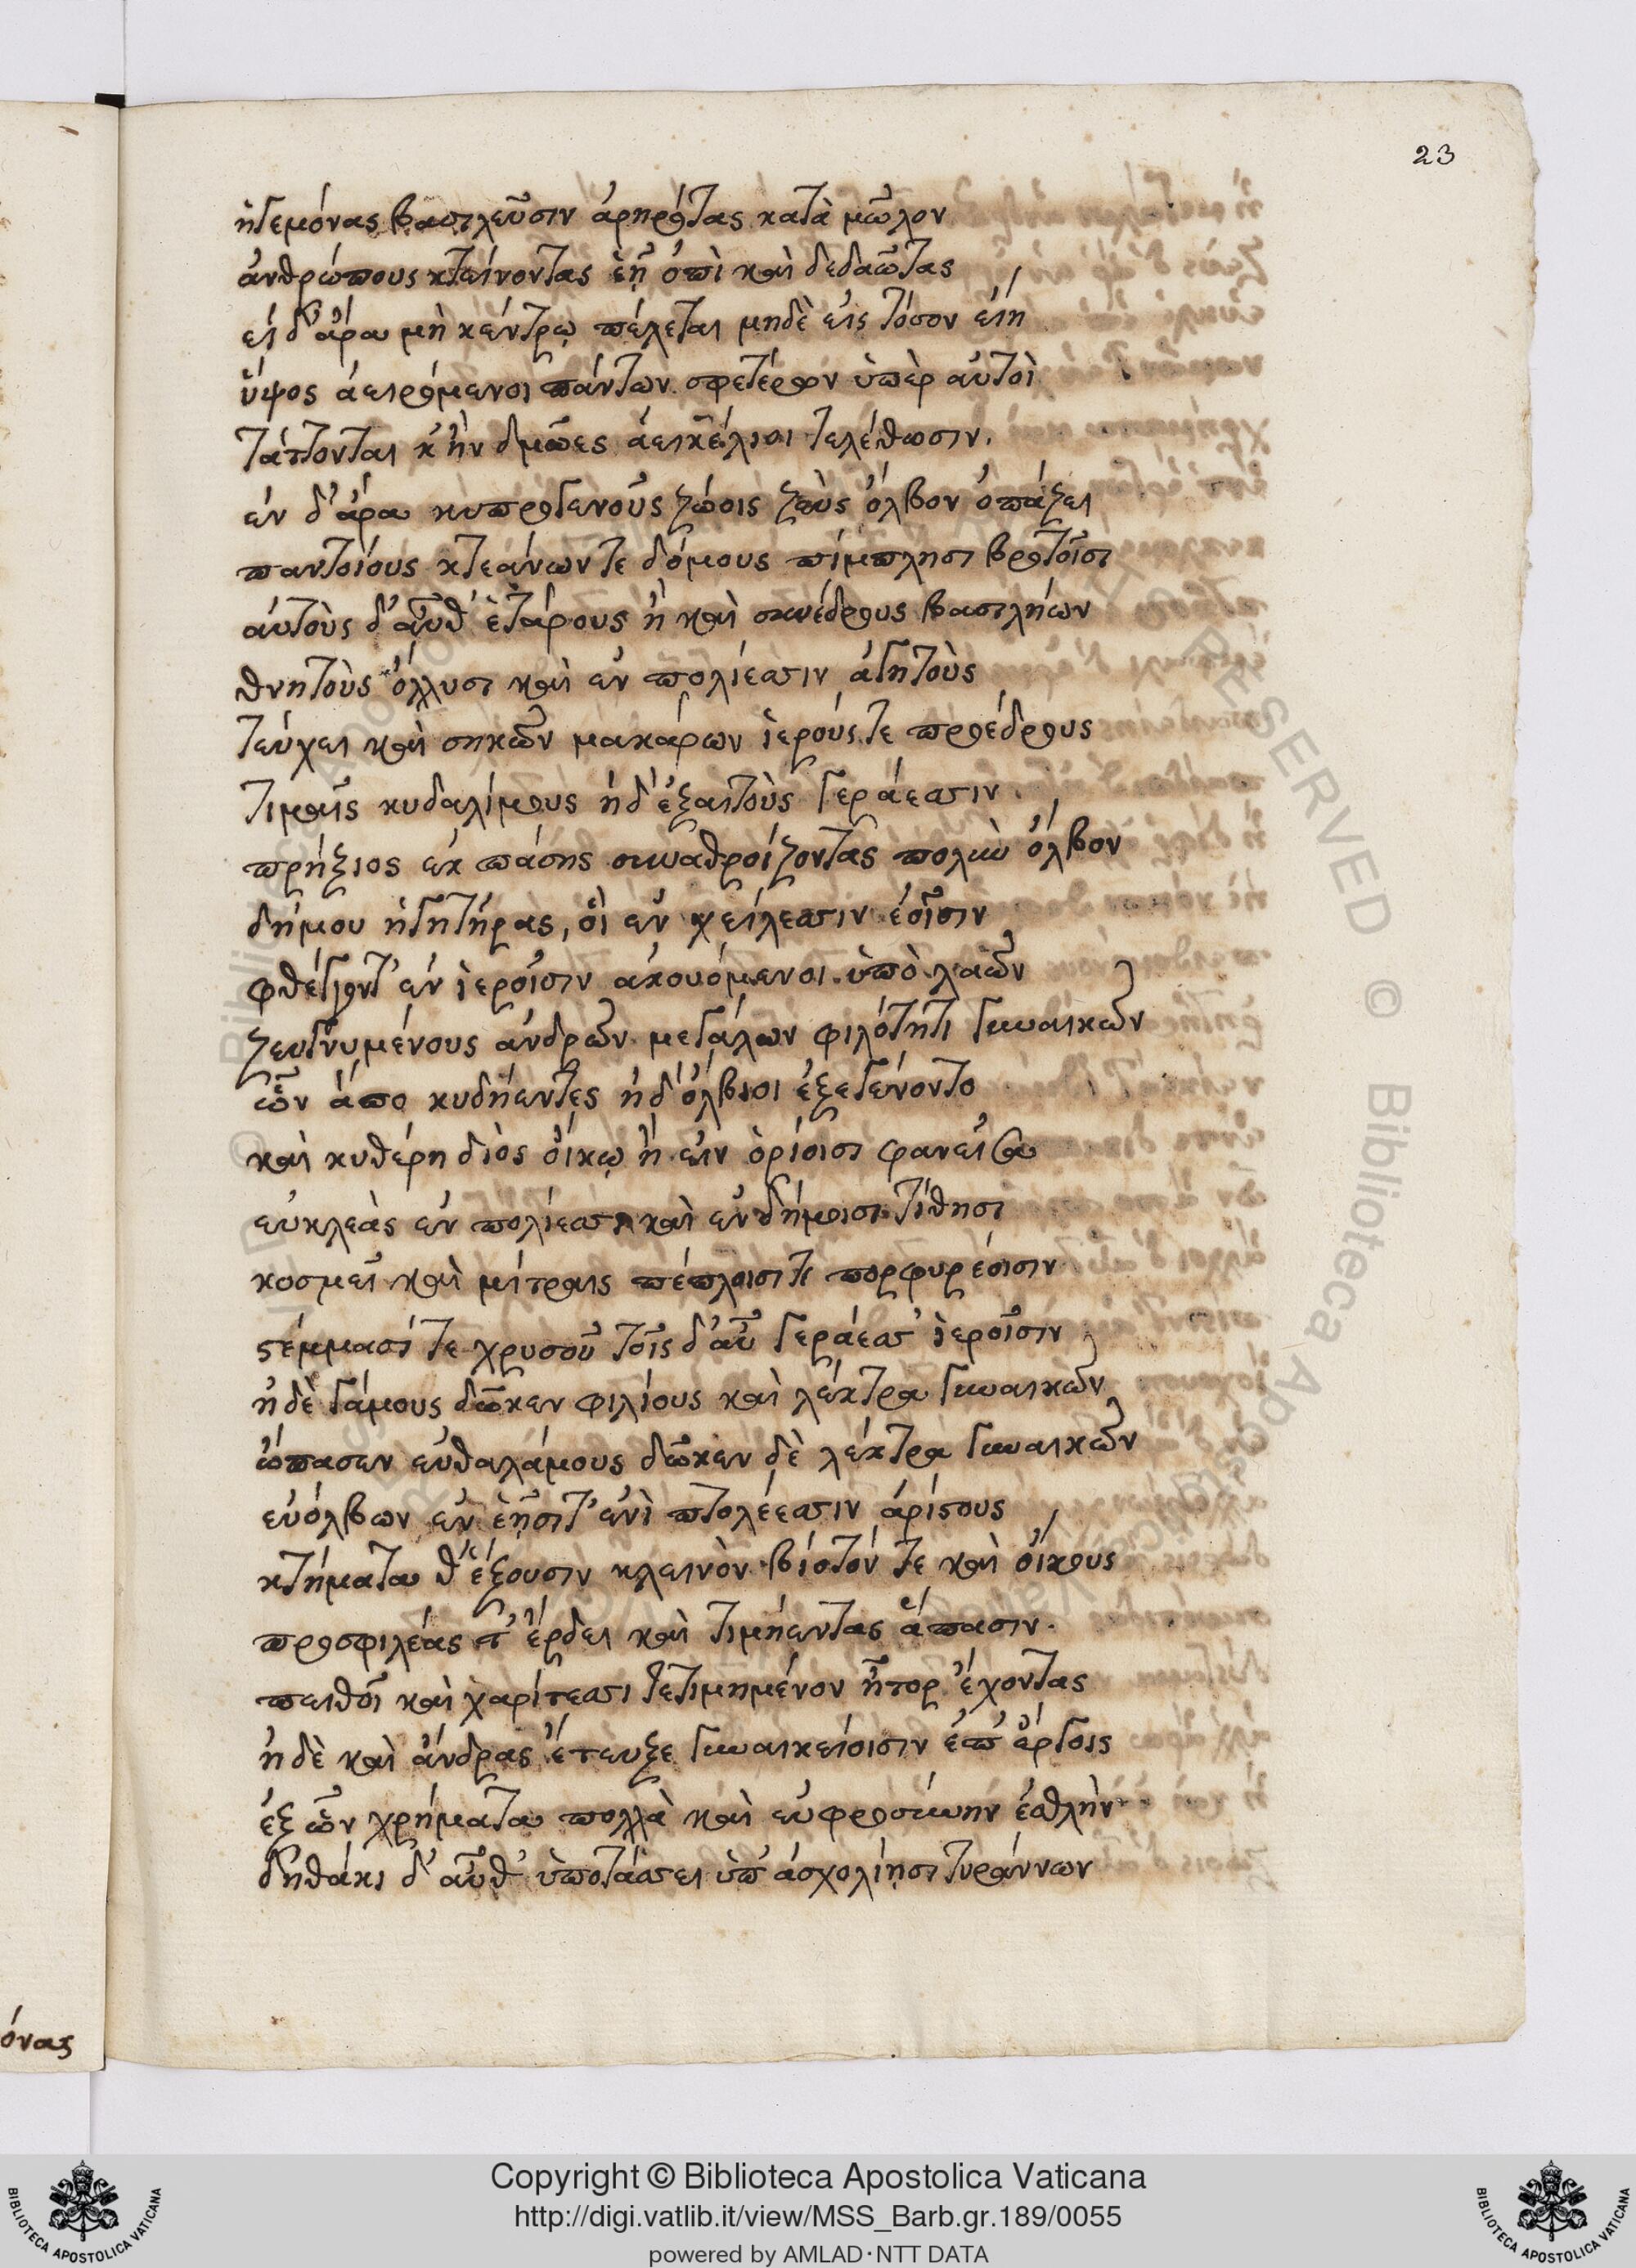 23
ἡγεμόνας βασιλεῦσιν ἀρηρότας κατὰ μῶλον
ἀνθρώπους κτείνοντας ἑῇ ὀπὶ καὶ δεδαῶτας
εἰ δ' ἄρα μὴ κέντρῳ πέλεται μηδὲ εἰς τόσον εἴη
ὕψος ἀειρόμενοι πάντων σφετέρων ὑπὲρ αὐτοὶ
τάττονται κ' ἢν δμῶες ἀεικέλιοι τελέθωσιν.
ἐν δ' ἄρα κυπρογενοῦς ζώοις ζεὺς ὄλβον ὀπάζει
παντοίους κτεάνων τε δόμους πίμπλησι βροτοῖσι
αὐτοὺς δ' αὖθ' ἑτάρους ἢ καὶ συνέδρους βασιλήων
θνητοὺς ὄλλυσι καὶ ἐν πολίεσσιν ἀγητοὺς
τεύχει καὶ σηκῶν μακάρων ἱερούς τε προέδρους
τιμαῖς κυδαλίμους ἠδ' ἐξαιτοὺς γεράεσσιν
πρήξιος ἐκ πάσης συναθροίζοντας πολὺν ὄλβον
δήμου ἡγητῆρας, οἳ ἐν χείλεσσιν ἑοῖσιν
φθέγγοντ' ἐν ἱεροῖσιν ἀκουόμενοι ὑπὸ λαῶν
ζευγνυμένους ἀνδρῶν μεγάλων φιλότητι γυναικῶν
ὧν ἄπο κυδήεντες ἠδ' ὄλβιοι ἐξεγένοντο
καὶ κυθέρη διὸς οἴκῳ ἢ εἰν ὁρίοισι φανεῖσα
εὐκλεὰς ἐν πολίεσσι καὶ ἐν δήμοισι τίθησι
κοσμεῖ καὶ μίτραις πέπλοισί τε πορφυρέοισιν
στέμμασί τε χρυσοῦ τοῖς δ' αὖ γεράεσσ' ἱεροῖσιν
ἠδὲ γάμους δῶκεν φιλίους καὶ λέκτρα γυναικῶν
ὤπασεν εὐθαλάμους δῶκεν δὲ λέκτρα γυναικῶν
εὐόλβων ἐν ἑῇσί τ' ἐνὶ πτολέεσσιν ἀρίστους
κτήματα θ' ἕξουσιν κλεινὸν βίοτόν τε καὶ οἴκους
προσφιλέας τ' ἔρδει καὶ τιμήεντας ἅπασιν.
πειθοῖ καὶ χαρίτεσσι τετιμημένον ἦτορ ἔχοντας
ἠδὲ καὶ ἄνδρας ἔτευξε γυναικείοισιν ἐπ' ἔργοις
ἐξ ὧν χρήματα πολλὰ καὶ εὐφροσύνην ἐσθλὴν
δηθάκι δ' αὖθ' ὑποτάσσει ὑπ' ἀσχολίῃσι τυράννων
όνας
Copyright © Biblioteca Apostolica Vaticana
http://digi.vatlib.it/view/MSS_Barb.gr.189/0055
powered by AMLAD·NTT DATA
BIBLIOTECA APOSTOLICA VATICANA
BIBLIOTECA APOSTOLICA VATICANA